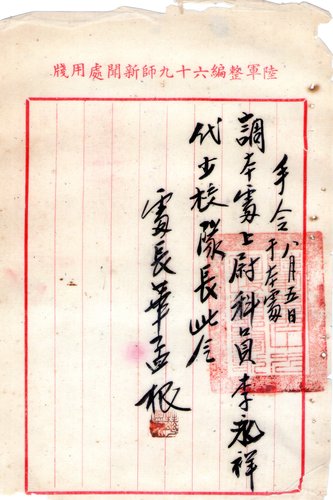 陸軍整編六十九師新聞處用牋
手令 八月五日
于本處
調本處上尉科員李永祥
代少校隊長此令
處長華孟根